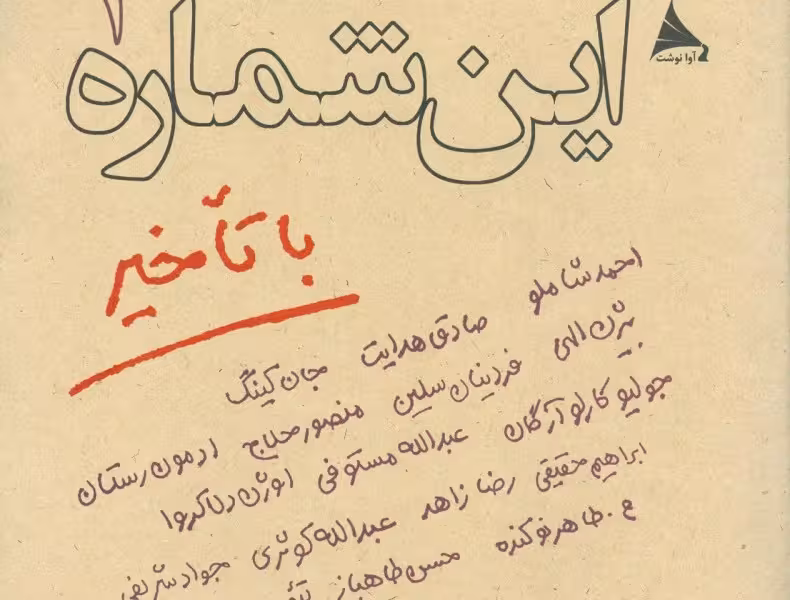 آوا نوشت
این شماره
با تأخیر
احمد شاملو صادق هدایت جان کینگ
بیژن الهی فردینان سلین منصور حلاج ادمون رستان
جولیو کارلو آرگان عبدالله مستوفی اوژن دلاکروا
ابراهیم حقیقی رضا زاهد عبدالله کوثری جواد شریفی
ع. طاهر نوکنده محسن طاهباز